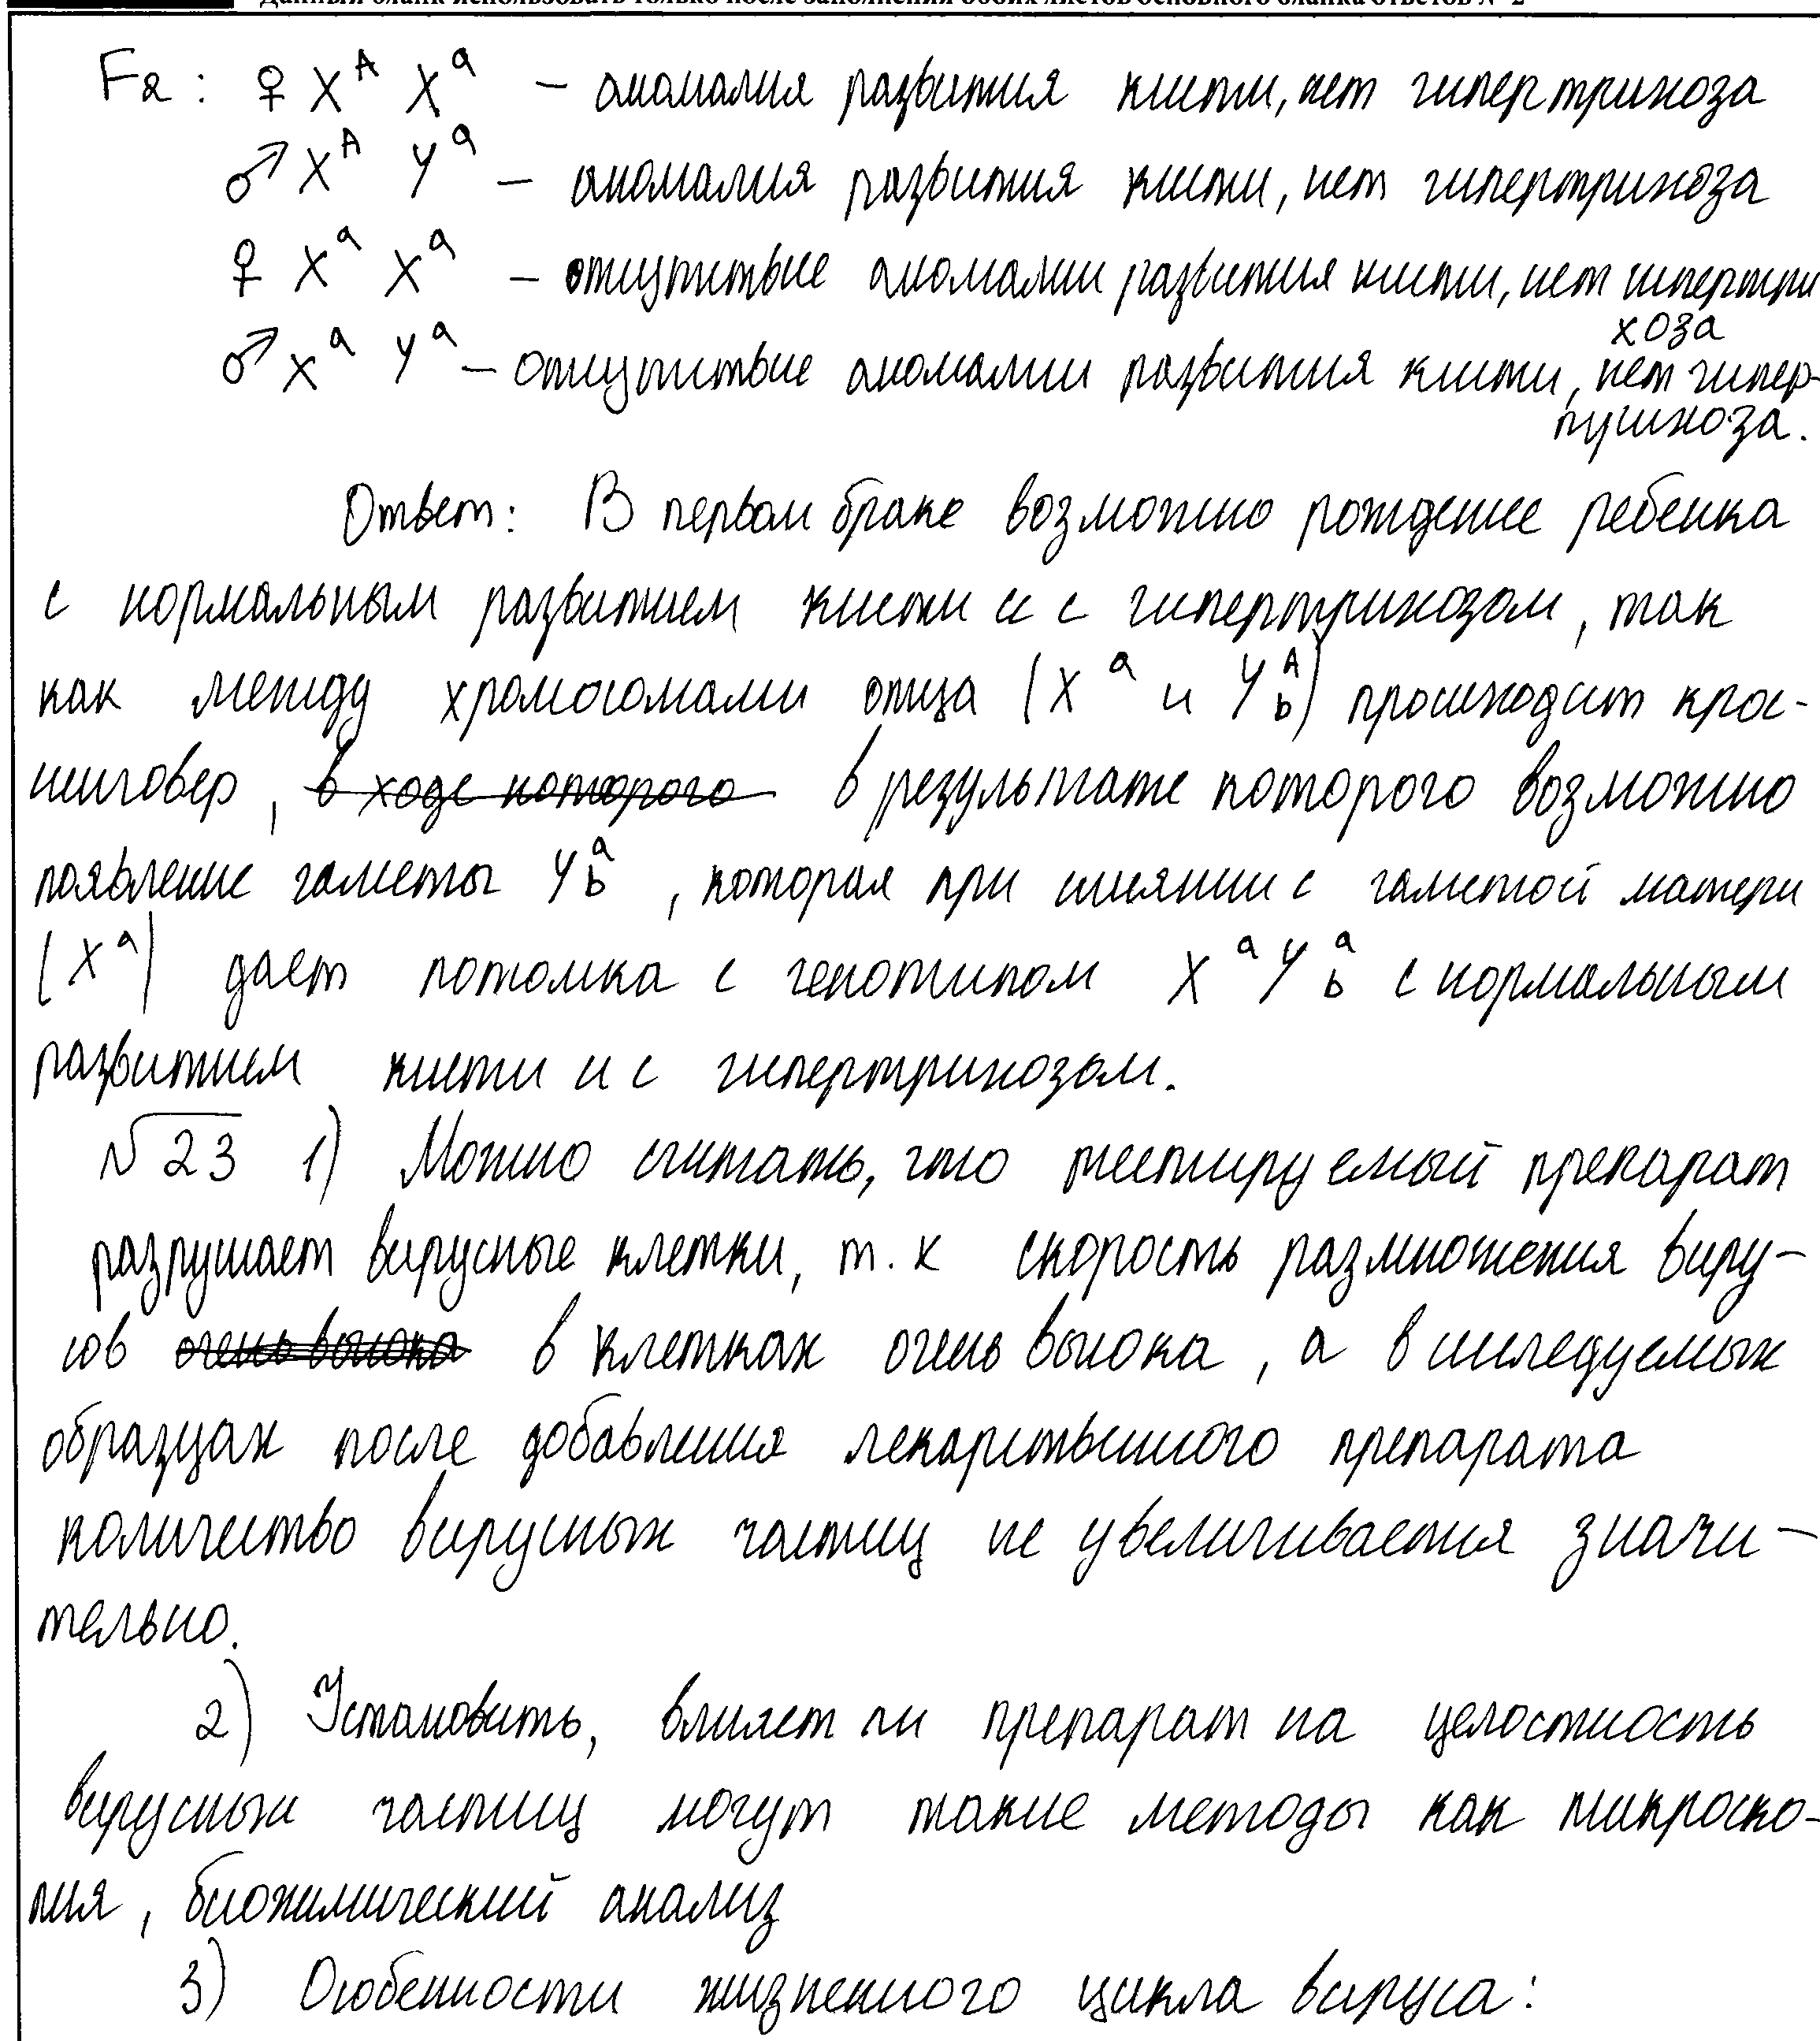 Данный бланк использовать только после заполнения обоих листов основного бланка ответов № 2
F2 : ♀ X^A X^a – аномалия развития кисти, нет гипертрихоза
♂ X^A Y^a – аномалия развития кисти, нет гипертрихоза
♀ X^a X^a – отсутствие аномалии развития кисти, нет гипертри
хоза
♂ X^a Y^a – отсутствие аномалии развития кисти, нет гипер-
трихоза.
Ответ: В первом браке возможно рождение ребенка
с нормальным развитием кисти и с гипертрихозом, так
как между хромосомами отца (X^a и Y^A_b) происходит крос-
синговер, ~~в ходе которого~~ в результате которого возможно
появление гаметы Y^a_b, которая при слиянии с гаметой матери
(X^a) дает потомка с генотипом X^a Y^a_b с нормальным
развитием кисти и с гипертрихозом.
№ 23 1) Можно считать, что тестируемый препарат
разрушает вирусные клетки, т. к скорость размножения виру-
сов ~~очень высока~~ в клетках очень высока, а в исследуемых
образцах после добавления лекарственного препарата
количество вирусных частиц не увеличивается значи-
тельно.
2) Установить, влияет ли препарат на целостность
вирусных частиц могут такие методы как микроско-
пия, биохимический анализ
3) Особенности жизненного цикла вируса: